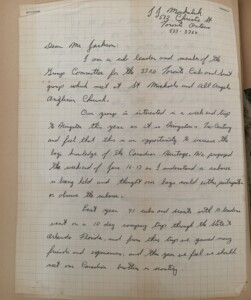 523 Christie St
Toronto Ontario
Dear Mr Jackson:
I am a cub leader and member of the
Group Committee for the 33rd Toronto Cub and Scout
group which meet at St Michaels and All Angels
Anglican Church.
Our group is interested in a week-end trip
to this year as it is Centenary
and feel that this is an opportunity to increase the
boys knowledge of the Canadian Heritage. We
the weekend of June as I understand a
is being held and thought our boys could either participate
or observe the
Last year 41 cubs and scouts with 12 leaders
went on a 10 day camping trip though the States to
Orlando Florida, and from this trip we gained many
friends and experiences, and this year we feel we should
meet our Canadian brothers in